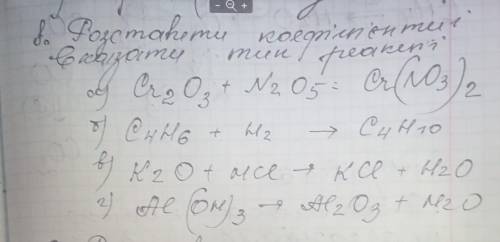 8. Розставити коефіцієнти і
вказати тип реакції
а) Cr2O3 + N2O5 = Cr(NO3)2
б) C4H6 + H2 → C4H10
в) K2O + HCl → KCl + H2O
г) Al(OH)3 → Al2O3 + H2O